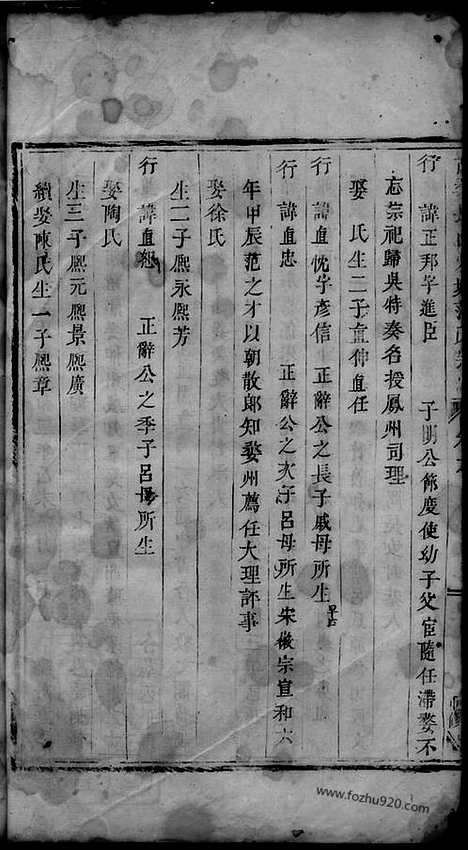 行　諱正邦字進臣　子明公節度使幼子父宦隨任滯婺不
忘榮祀歸吳特奏名授鳳州司理
娶　氏生二子直仲直任
行　諱直忱字彥信　正辭公之長子戚母所生早亡
行　諱直忠　正辭公之次子呂母所生宋徽宗宣和六
年甲辰范之才以朝散郎知婺州薦任大理評事
娶徐氏
生二子熙永熙芳
行　諱直恕　正辭公之季子呂母所生
娶陶氏
生三子熙元熙景熙廣
續娶陳氏生一子熙章
www.fozhu920.com